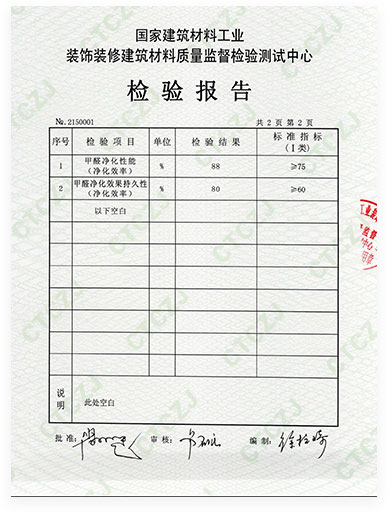 国家建筑材料工业
装饰装修建筑材料质量监督检验测试中心
检验报告
№.2150001 共 2 页 第 2 页
序号 检验项目 单位 检验结果 标准指标
(Ⅰ类)
1 甲醛净化性能
(净化效率) % 88 ≥75
2 甲醛净化效果持久性
(净化效率) % 80 ≥60
以下空白
说明 此处空白
批准: 审核: 编制:
CTCZJ